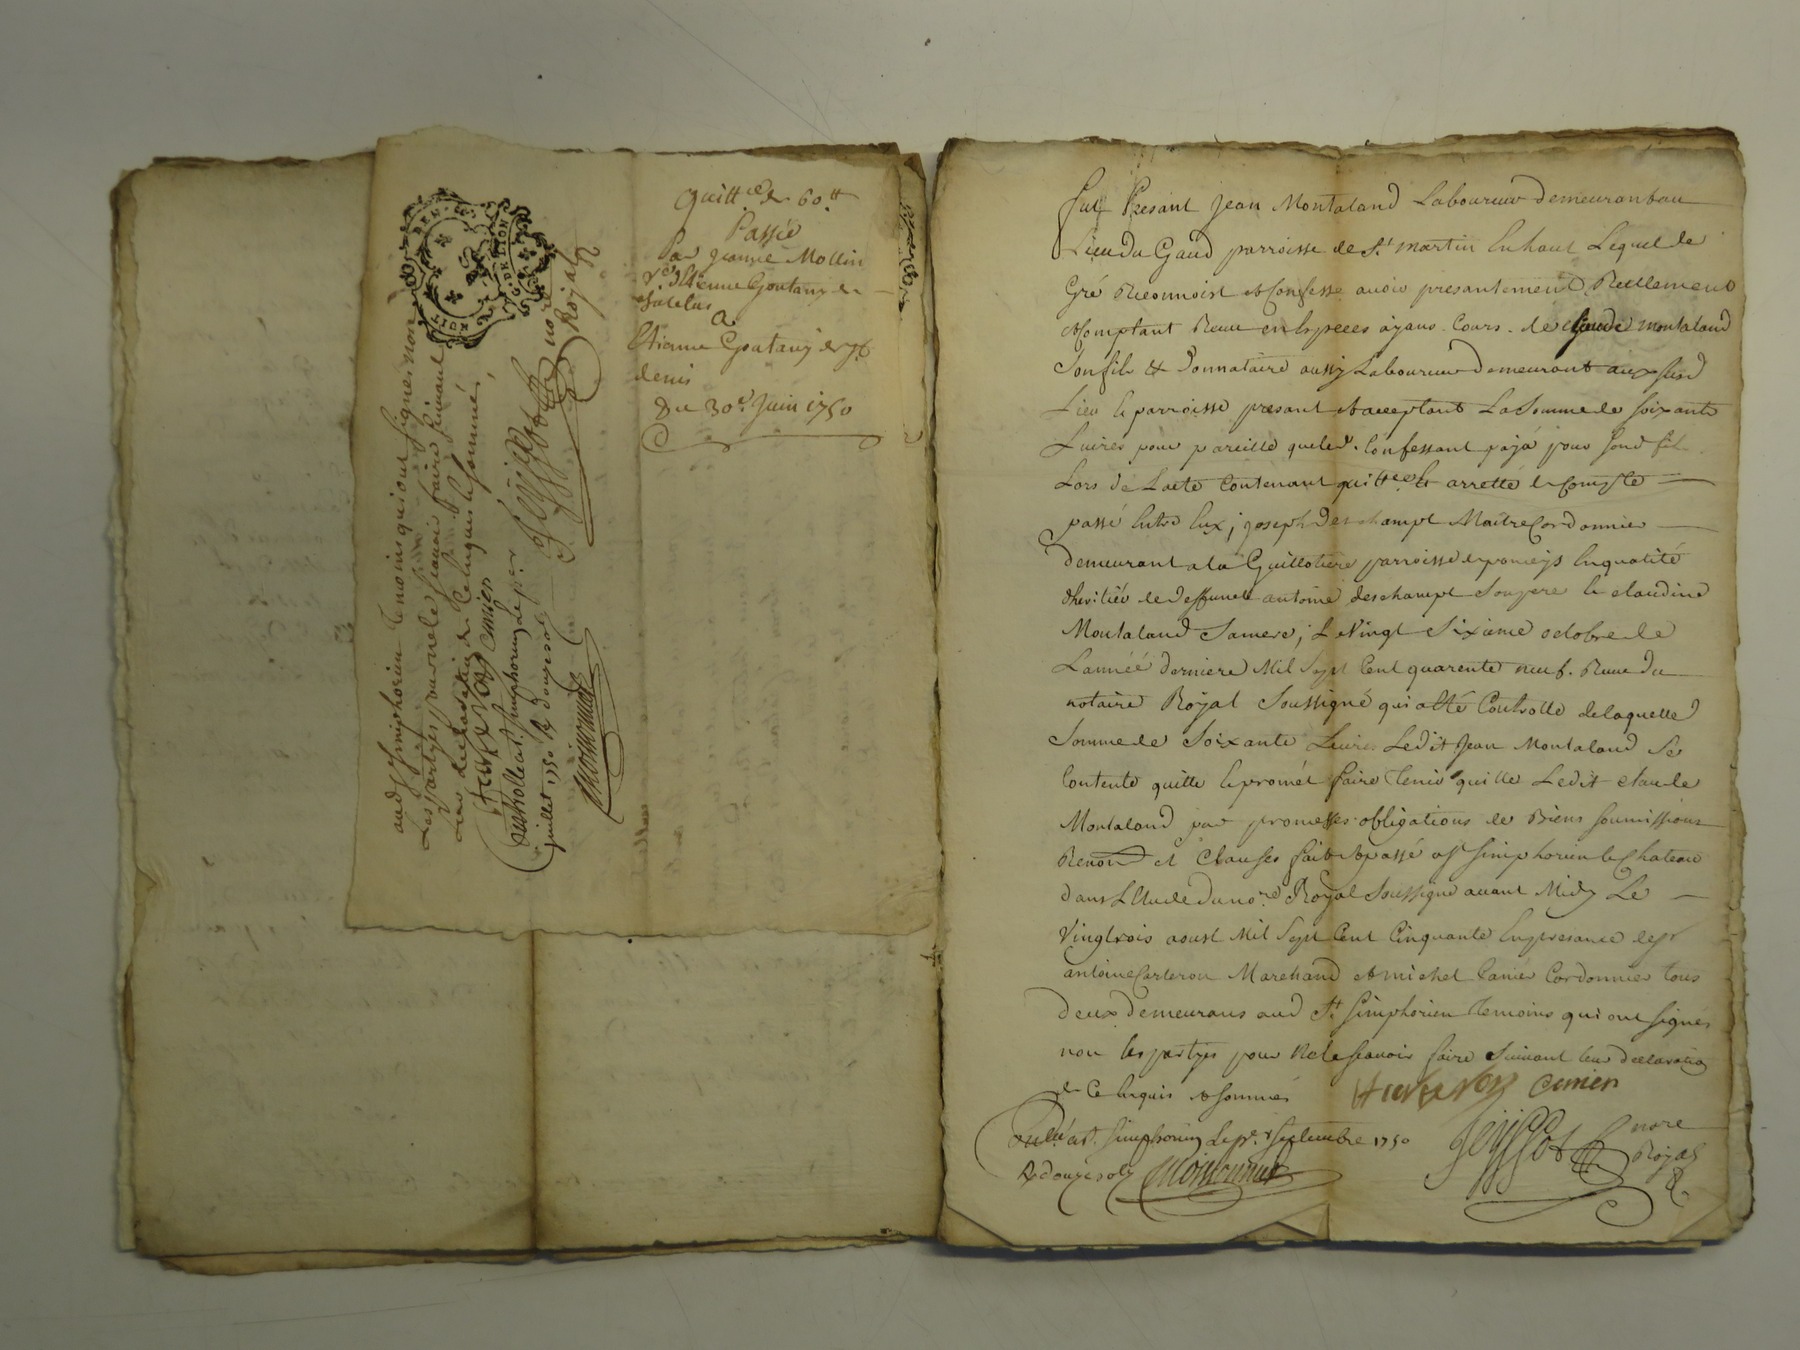 quitt.ce de 60.tt
Passée
Par Jeanne Mollin
v.e d'Etienne Goutany de
A
Etienne Goutany de st
denis
Du 30.e Juin 1750
HUIT DEN.
G. DE LION
aud St Simphorien temoins qui ont signés non
Les partyes pour ne le scavoir faire suivant
Leur declaration de ce enquis et sommé,
carteron Canier
Controllé a st. simphorien Le per
juillet 1750 R douze sols
nore
Royal
Fut Présant Jean Montaland Laboureur demeurant au
Lieu du Gaud parroisse de St martin En haut Lequel de
Gré Reconnoist et Confesse avoir presantement Reellement
et Comptant Receu en Espeees ayans Cours de Claude montaland
Son fils et Donnataire aussy Laboureur demeurant aux susd
Lieu et parroisse presant et acceptant La Somme de soixante
Livres pour pareille que led. Confessant paja pour sond fil
Lors de L'acte Contenant quittce et arretté de Compte
passé Entre Eux, Joseph Deschampt Maitre Cordonnier
demeurant a la Guillotiere parroisse de pomeys En qualité
d'heritier de deffunct antoine deschampt Son pere et claudine
Montaland Sa mere, Le Vingt Sixieme octobre de
L'année derniere Mil Sept Cent quarente neuf. Receu du
notaire Royal Soussigné qui a Été Controllé de laquelle
Somme de Soixante Livres Ledit Jean Montaland Se
Contente quitte et promét faire tenir quitte Ledit claude
Montaland par promesses obligations de Biens soumissions
Renon et Clauses fait et passé a st simphorien le Chateau
dans L'Etude du nore Royal Soussigné avant Midy Le
Vingt trois aoust Mil Sept Cent Cinquante En presance de sr
antoine Carteron Marchand et michel Canier Cordonnier tous
deux demeurans aud St Simphorien temoins qui ont signés
non les partyes pour ne le scavoir faire suivant leur declaration
de Ce Enquis et sommés
carteron Canier
Conlé a st. simphorien Le per septembre 1750
R douze sols
nore
Royal